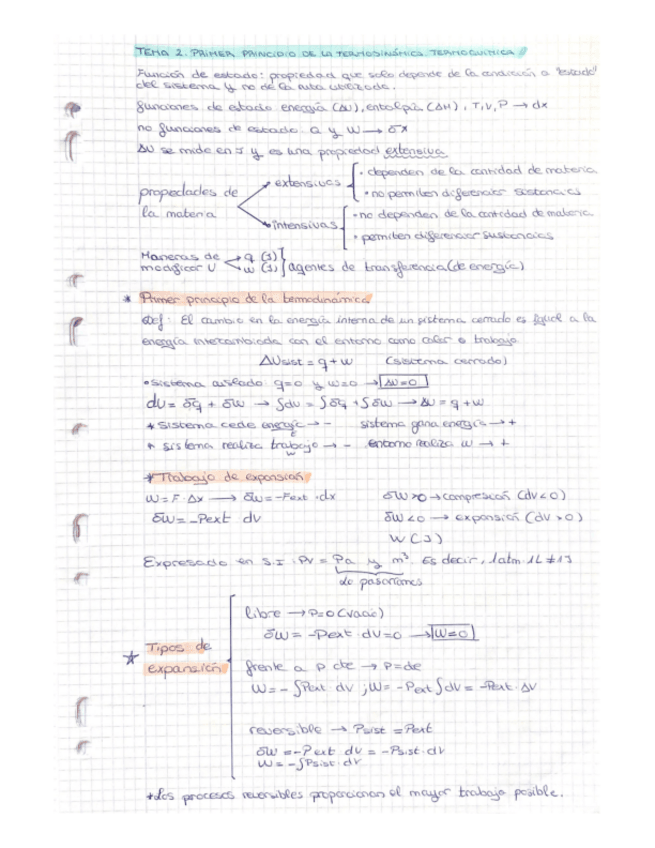 TEMA 2. PRIMER PRINCIPIO DE LA TERMODINÁMICA. TERMOQUÍMICA
Función de estado: propiedad que solo depende de la condición o "estado"
del sistema y no de la ruta utilizada.
funciones de estado energía (ΔU), entalpía (ΔH), T, V, P → dx
no funciones de estado q y w → δx
ΔU se mide en J y es una propiedad extensiva
propiedades de la materia
→ extensivas
• dependen de la cantidad de materia
• no permiten diferenciar sustancias
→ intensivas
• no dependen de la cantidad de materia
• permiten diferenciar sustancias
Maneras de modificar U
→ q (J)
→ w (J)
agentes de transferencia (de energía)
* Primer principio de la termodinámica
Def: El cambio en la energía interna de un sistema cerrado es igual a la
energía intercambiada con el entorno como calor o trabajo
ΔUsist = q + w (sistema cerrado)
• sistema aislado q=0 y w=0 → ΔU=0
dU = δq + δw → ∫dU = ∫δq + ∫δw → ΔU = q + w
* sistema cede energía → - sistema gana energía → +
E
* sistema realiza trabajo → - entorno realiza w → +
w
* Trabajo de expansión
W = F · Δx → δW = -Fext · dx δW>0 → compresión (dV<0)
δW = -Pext dV δW<0 → expansión (dV>0)
W (J)
Expresado en S.I. PV = Pa y m³. Es decir, 1atm · 1L ≠ 1J
lo pasaríamos
* Tipos de expansión
libre → P=0 (vacío)
δW = -Pext · dV = 0 → W=0
frente a P cte → P=cte
W = - ∫Pext · dV ; W = -Pext ∫dV = -Pext · ΔV
reversible → Psist = Pext
δW = -Pext dV = -Psist · dV
W = -∫Psist · dV
* Los procesos reversibles proporcionan el mayor trabajo posible.